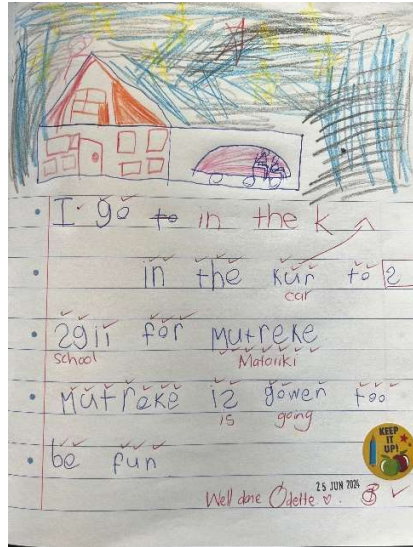 I go to in the k
in the kur to 2
car
2gil for mutreke
school Matariki
mutreke iz gowen too
is going
be fun
KEEP IT UP!
25 JUN 2024
Well done Odette